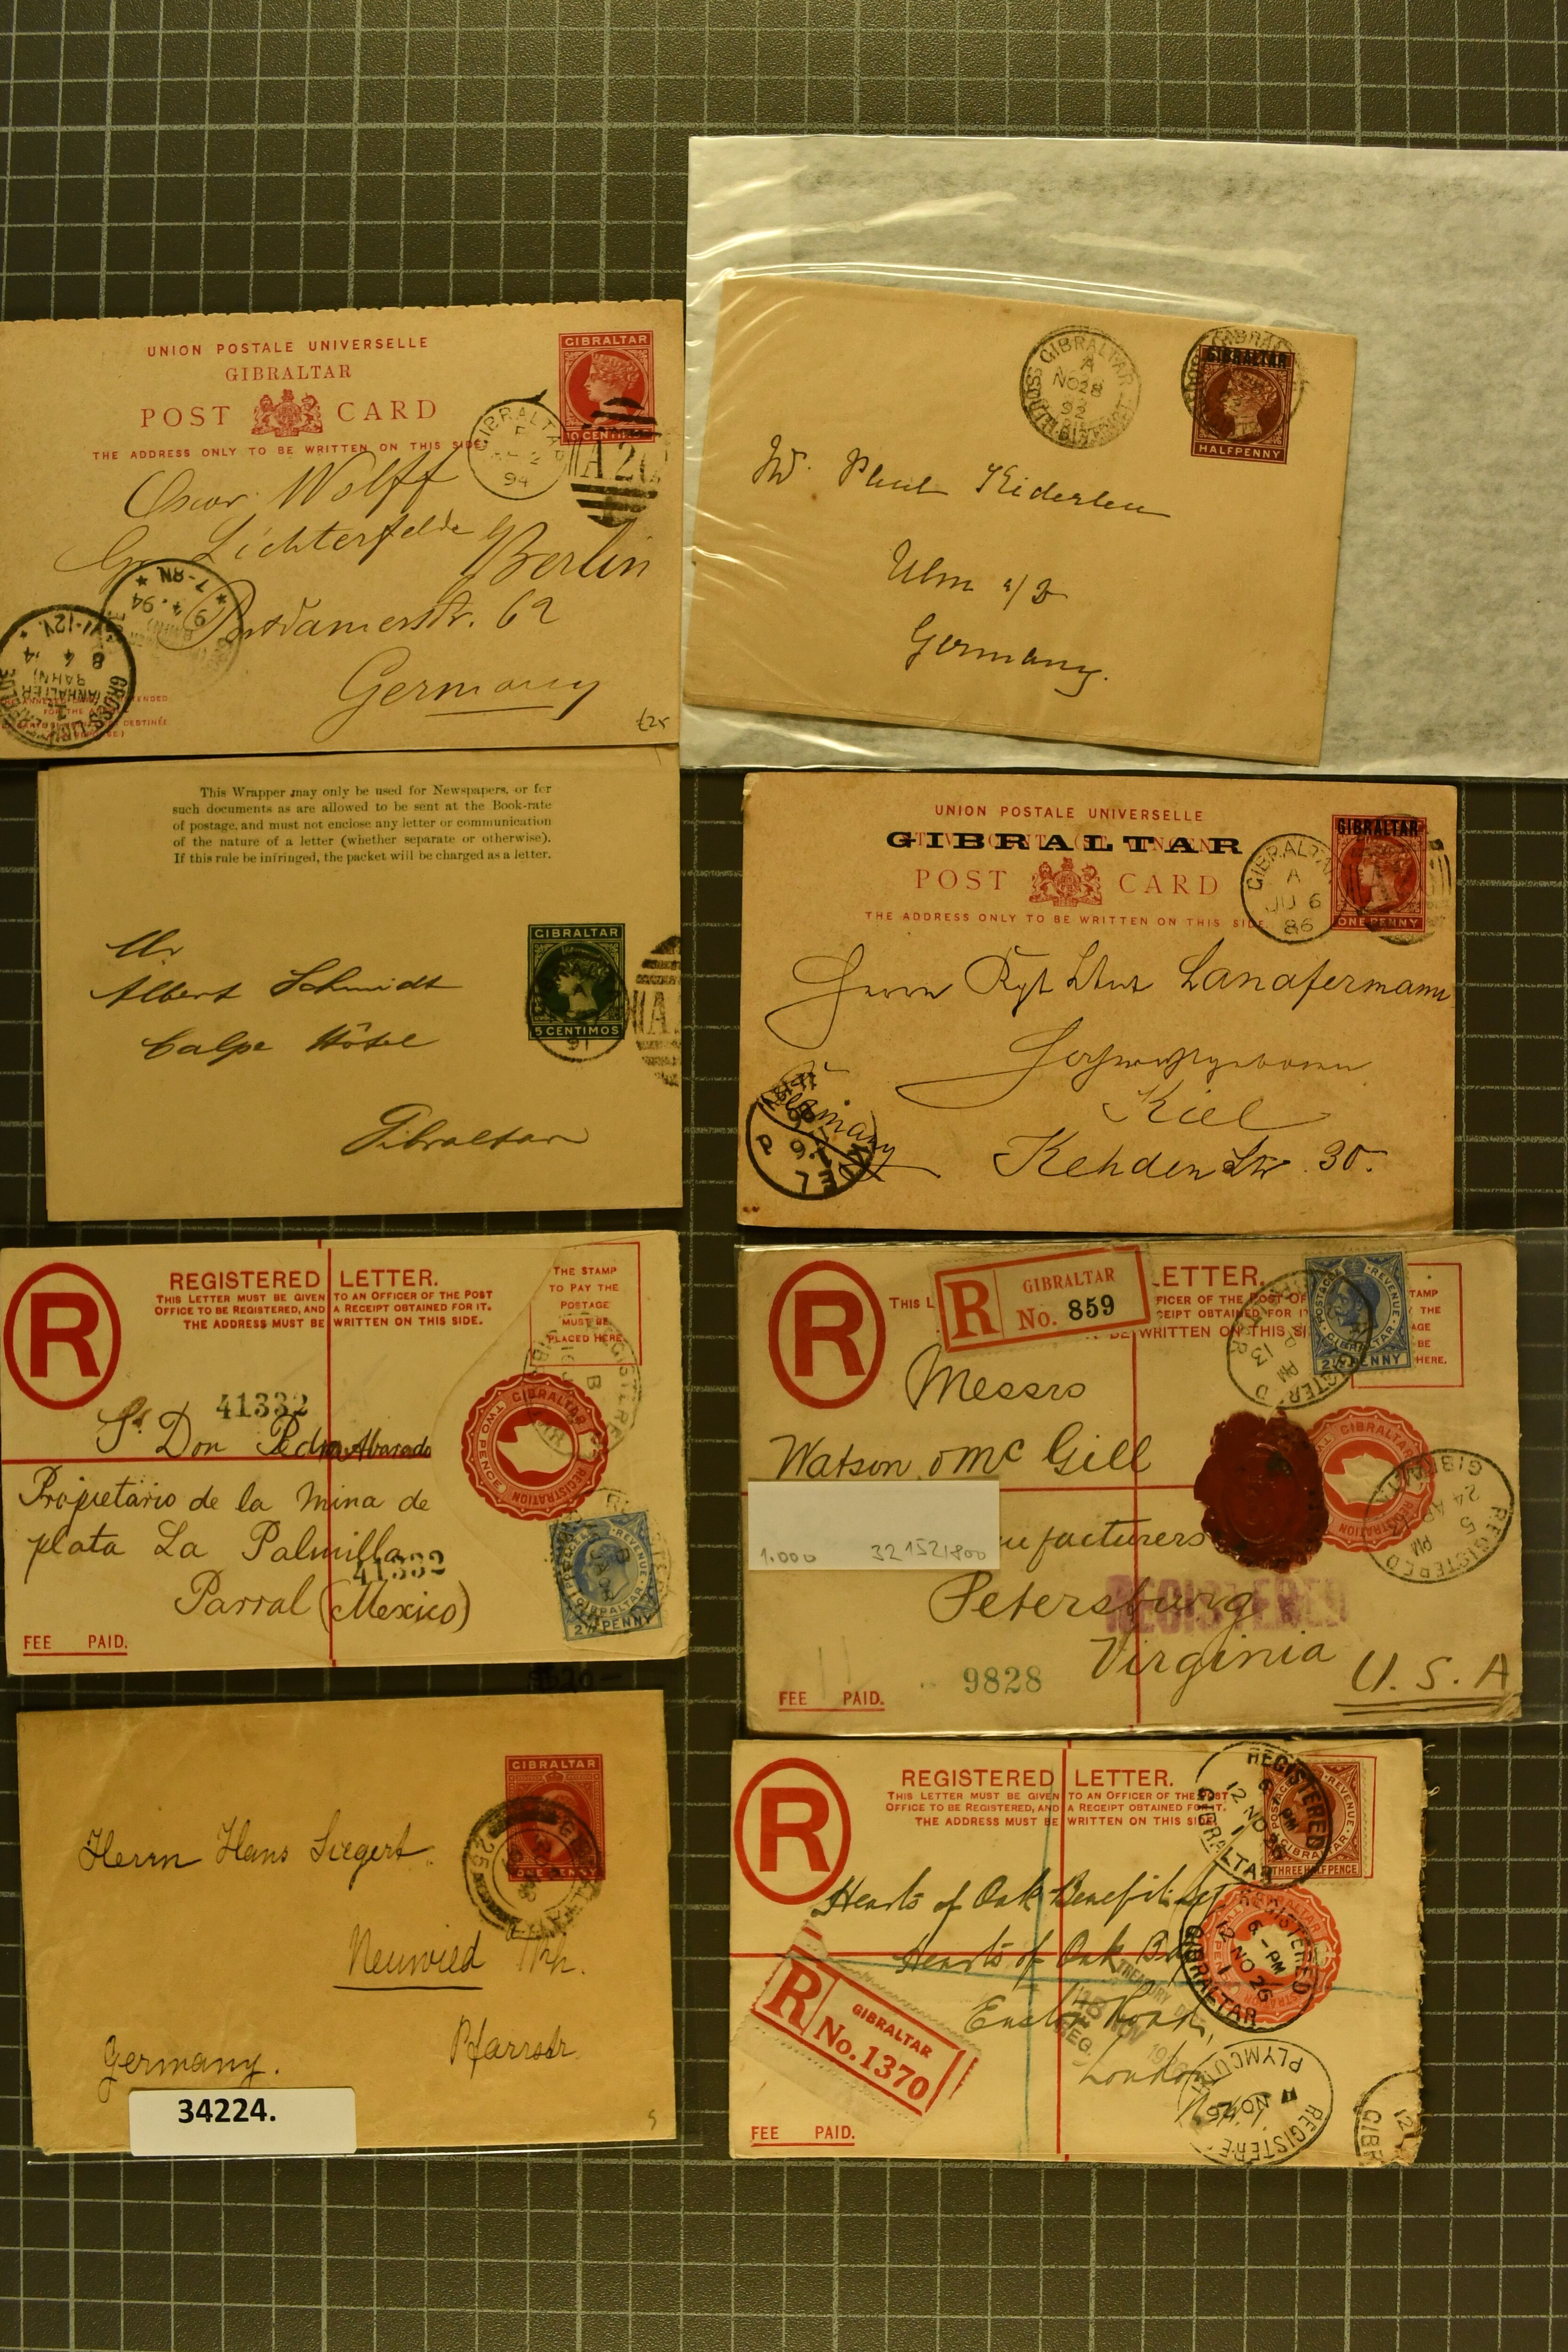 UNION POSTALE UNIVERSELLE
GIBRALTAR
POST CARD
THE ADDRESS ONLY TO BE WRITTEN ON THIS SIDE
GIBRALTAR
10 CENTIMOS
GIBRALTA
94
A26
Oscar Wolff
Gr. Lichterfelde b/
Berlin
Potsdamerstr. 62
Germany
£25
GIBRALTAR
A
NO 28
92
GIBRALTAR
GIBRALTAR
HALFPENNY
Paul Kiderlen
Ulm a/D
Germany.
This Wrapper may only be used for Newspapers, or for
such documents as are allowed to be sent at the Book-rate
of postage, and must not enclose any letter or communication
of the nature of a letter (whether separate or otherwise).
If this rule be infringed, the packet will be charged as a letter.
GIBRALTAR
5 CENTIMOS
91
Mr
Albert Schmidt
Calpe Hôtel
Gibraltar
UNION POSTALE UNIVERSELLE
GIBRALTAR
POST CARD
THE ADDRESS ONLY TO BE WRITTEN ON THIS SIDE
GIBRALTAR
ONE PENNY
GIBRALTAR
A
JU 6
86
Herrn
Kiel
Kehden Str. 30.
Germany
KIEL
R
REGISTERED LETTER.
THIS LETTER MUST BE GIVEN TO AN OFFICER OF THE POST
OFFICE TO BE REGISTERED, AND A RECEIPT OBTAINED FOR IT.
THE ADDRESS MUST BE WRITTEN ON THIS SIDE.
THE STAMP
TO PAY THE
POSTAGE
MUST BE
PLACED HERE
41332
GIBRALTAR
TWO PENCE
REGISTRATION
Sr. Don Pedro Alvarado
Propietario de la mina de
plata La Palmilla
41332
Parral (Mexico)
POSTAGE & REVENUE
GIBRALTAR
2½ PENNY
FEE PAID.
R
R GIBRALTAR
No. 859
LETTER.
THIS L
FICER OF THE POST OF
CEIPT OBTAINED FOR IT
BE WRITTEN ON THIS SI
POSTAGE & REVENUE
GIBRALTAR
2½ PENNY
TAMP
THE
AGE
BE
HERE.
Messrs
Watson & McGill
ufacturers
1.000 321521800
Petersburg
REGISTERED
Virginia
U. S. A
GIBRALTAR
REGISTRATION
REGISTERED
5 PM
24 AP 13
GIBRALTAR
9828
FEE PAID.
GIBRALTAR
ONE PENNY
Herrn Hans Siegert
Neuwied Rh.
Pfarrstr.
Germany.
34224.
R
REGISTERED LETTER.
THIS LETTER MUST BE GIVEN TO AN OFFICER OF THE POST
OFFICE TO BE REGISTERED, AND A RECEIPT OBTAINED FOR IT.
THE ADDRESS MUST BE WRITTEN ON THIS SIDE
REGISTERED
6 PM
12 NO 26
GIBRALTAR
POSTAGE & REVENUE
GIBRALTAR
THREE HALF PENCE
REGISTERED
6 - PM
12 NO 26
GIBRALTAR
Hearts of Oak Benefit
Hearts of Oak
Euston Road,
London
R GIBRALTAR
No. 1370
TREASURY
18 NOV
REG.
PLYMOUTH
NO 26
REGISTERE
FEE PAID.
12
GIBR